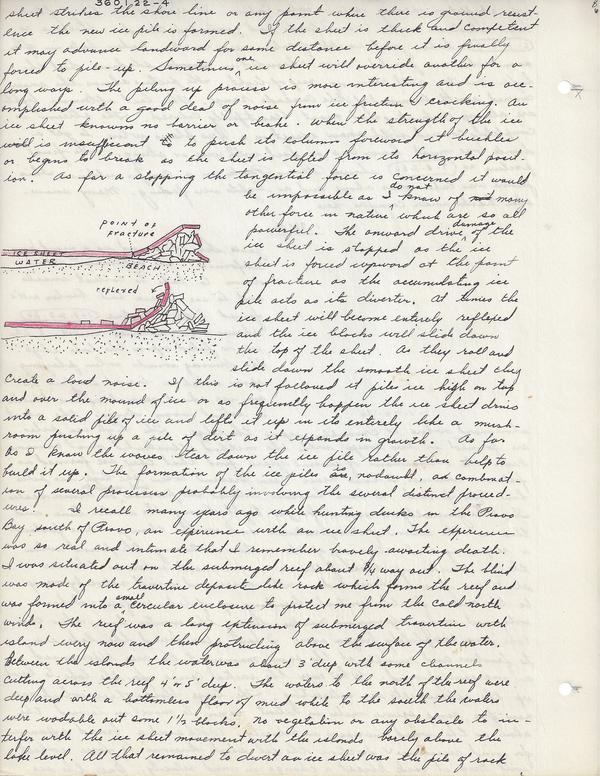 360/22-4
sheet strikes the shore line or any point where there is ground resist-
ence the new ice pile is formed. If the sheet is thick and competent
it may advance landward for some distance before it is finally
forced to pile-up. Sometimes one ice sheet will override another for a
long ways. The piling up process is more interesting and is acc-
omplished with a good deal of noise from ice friction & cracking. An
ice sheet knowns no barrier or brake. When the strength of the ice
wall is insufficient to push its column foreword it buckles
or begins to break as the sheet is lifted from its horizontal posit-
ion. As far a stopping the tangential force is concerned it would
be impossible as I do not know of many
other force in nature which are so all
powerful. The onward drive, damage of the
ice sheet is stopped as the ice
sheet is forced upward at the point
of fracture as the accumulating ice
pile acts as its diverter. At times the
ice sheet will become entirely reflexed
and the ice blocks will slide down
the top of the sheet. As they roll and
slide down the smooth ice sheet they
POINT OF
fracture
ICE SHEET
WATER
BEACH
reflexed
create a loud noise. If this is not followed it piles ice high on top
and over the mound of ice or as frequently happen the ice sheet drives
into a solid pile of ice and lifts it up in its entirely like a mush-
room pushing up a pile of dirt as it expands in growth. As far
as I know the waves tear down the ice pile rather than help to
build it up. The formation of the ice piles are, no doubt, a combinat-
ion of several processes probably involving the several distinct proced-
ures. I recall many years ago while hunting ducks in the Provo
Bay south of Provo, an experience with an ice sheet. The experience
was so real and intimate that I remember bravely awaiting death.
I was situated out on the submerged reef about 3/4 way out. The blind
was made of the travertine deposit like rock which forms the reef and
was formed into a small circular enclosure to protect me from the cold north
winds. The reef was a long extension of submerged travertine with
island every now and then protruding above the surface of the water.
Between the islands the water was about 3' deep with some channels
cutting across the reef 4' or 5' deep. The waters to the north of the reef were
deep and with a bottomless floor of mud while to the south the waters
were wadable out some 1 1/2 blocks. no vegetation or any obstacle to in-
terfer with the ice sheet movement with the islands barely above the
lake level. All that remained to divert an ice sheet was the pile of rock